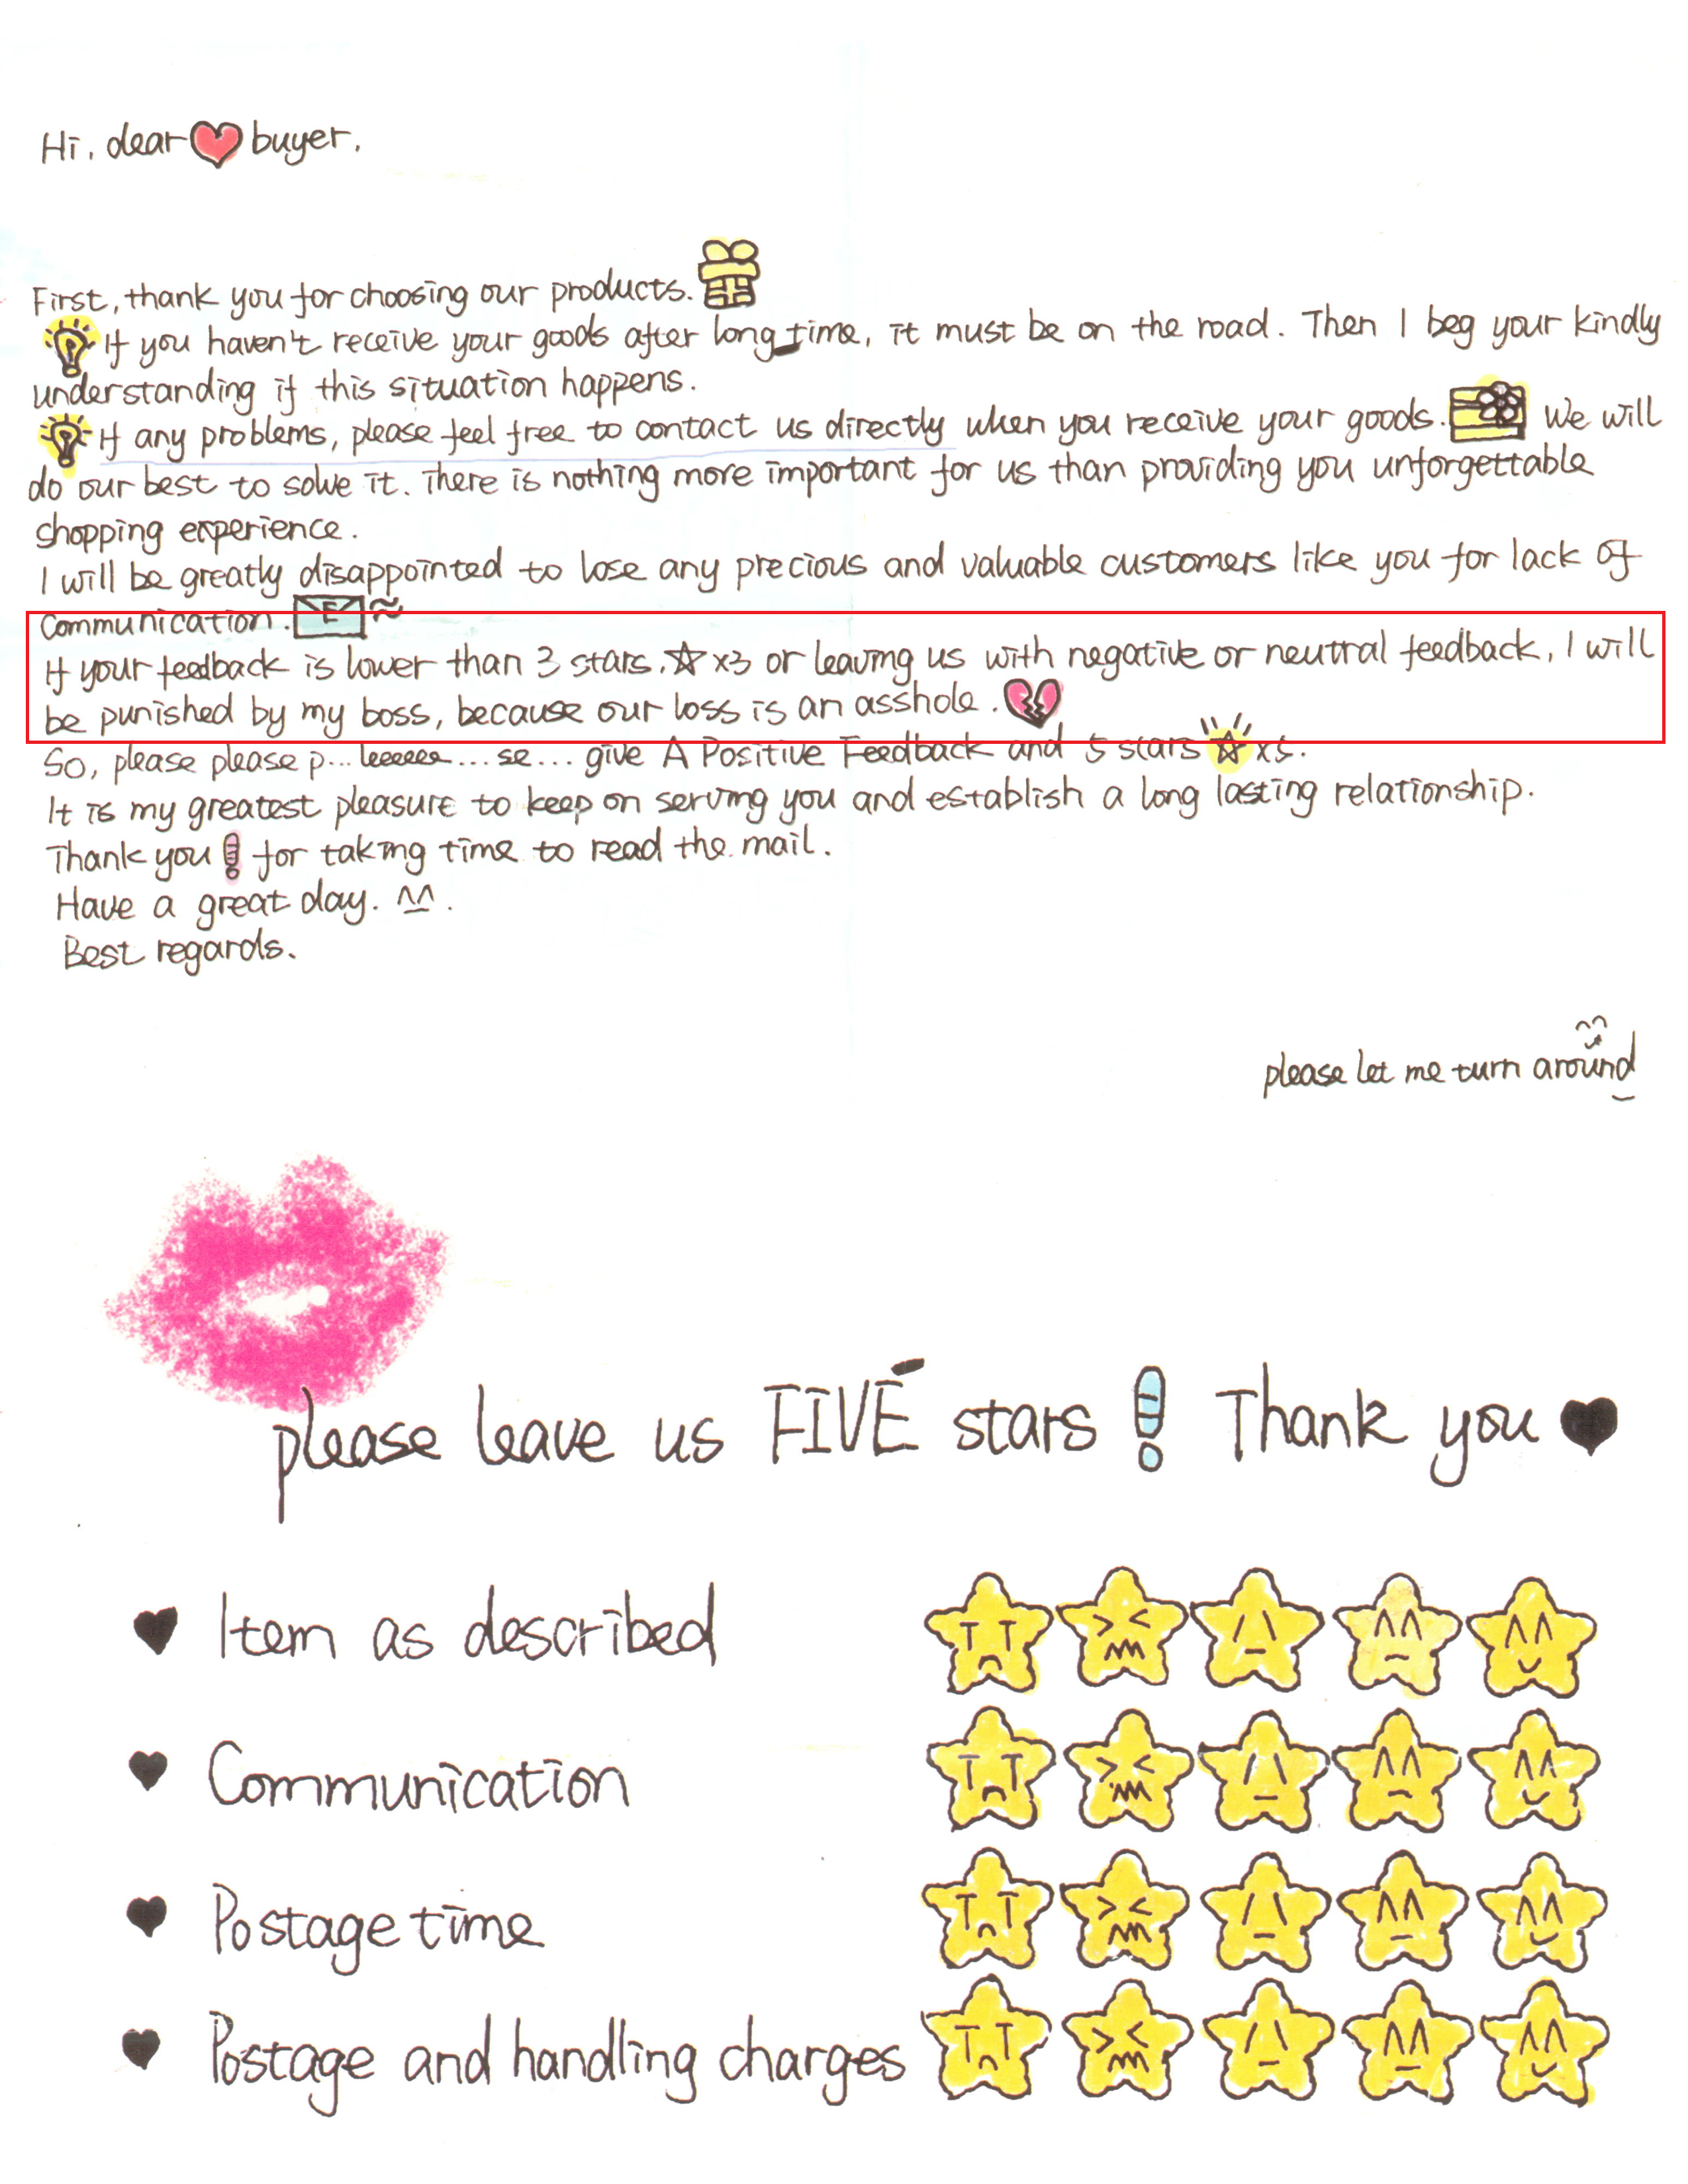 Hi, dear buyer,
First, thank you for choosing our products.
If you haven't receive your goods after long time, it must be on the road. Then I beg your kindly
understanding if this situation happens.
If any problems, please feel free to contact us directly when you receive your goods. We will
do our best to solve it. There is nothing more important for us than providing you unforgettable
shopping experience.
I will be greatly disappointed to lose any precious and valuable customers like you for lack of
communication. E
If your feedback is lower than 3 stars. ☆x3 or leaving us with negative or neutral feedback, I will
be punished by my boss, because our loss is an asshole.
So, please please p... leeeeee... se... give A Positive Feedback and 5 stars ☆x5.
It is my greatest pleasure to keep on serving you and establish a long lasting relationship.
Thank you! for taking time to read the mail.
Have a great day. ^_^.
Best regards.
please let me turn around
please leave us FIVE stars! Thank you
Item as described
Communication
Postage time
Postage and handling charges